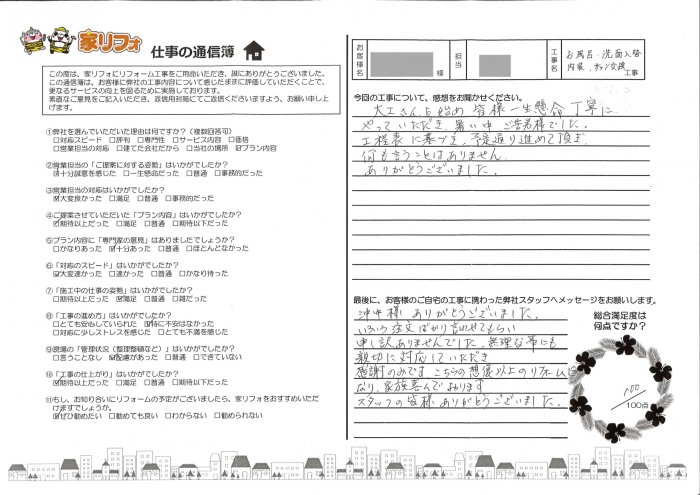 家リフォ 仕事の通信簿
この度は、家リフォにリフォーム工事をご用命いただき、誠にありがとうございました。
この通信簿は、お客様に弊社の工事内容について感じたままに評価していただくことで、
更なるサービスの向上を図るために実施しております。
素直なご意見をご記入いただき、返信用封筒にてご返信くださいますよう、お願い申し上
げます。
①弊社を選んでいただいた理由は何ですか？（複数回答可）
□対応スピード □評判 □専門性 □サービス内容 □価格
□営業担当の対応 □建てた会社だから □当社の場所 ☑プラン内容
②営業担当の「ご提案に対する姿勢」はいかがでしたか？
☑十分誠意を感じた □一生懸命だった □普通 □事務的だった
③営業担当の対応はいかがでしたか？
☑大変良かった □満足 □普通 □事務的だった
④ご提案させていただいた「プラン内容」はいかがでしたか？
☑期待以上だった □満足 □普通 □期待以下だった
⑤プラン内容に「専門家の意見」はありましたでしょうか？
□かなりあった ☑十分あった □普通 □ほとんどなかった
⑥「対応のスピード」はいかがでしたか？
☑大変速かった □速かった □普通 □かなり待った
⑦「施工中の仕事の姿勢」はいかがでしたか？
□期待以上だった ☑満足 □普通 □雑だった
⑧「工事の進め方」はいかがでしたか？
□とても安心していられた ☑特に不安はなかった
□対応に少しストレスを感じた □とても不満を感じた
⑨現場の「管理状況（整理整頓など）」はいかがでしたか？
□言うことなし ☑配慮があった □普通 □できていない
⑩「工事の仕上がり」はいかがでしたか？
☑期待以上だった □満足 □普通 □期待以下だった
⑪もし、お知り合いにリフォームの予定がございましたら、家リフォをおすすめいただ
けますでしょうか。
☑ぜひ勧めたい □勧めても良い □わからない □勧められない
お客様名 様 担当 工事名 お風呂・洗面入替
内装、キッチン交換 工事
今回の工事について、感想をお聞かせください。
大工さんを始め 皆様一生懸命丁寧に
やっていただき、暑い中 ご苦労様でした。
工程表に基づき、予定通り進めて頂き
何も言うことはありません。
ありがとうございました。
最後に、お客様のご自宅の工事に携わった弊社スタッフへメッセージをお願いします。
沖中様 ありがとうございました。
いろいろ注文ばかり言わせてもらい
申し訳ありませんでした。無理な事にも
親切に対応していただき
感謝のみです。こちらの想像以上のリフォームに
なり、家族喜んでおります
スタッフの皆様 ありがとうございました。
総合満足度は
何点ですか？
100
／100点